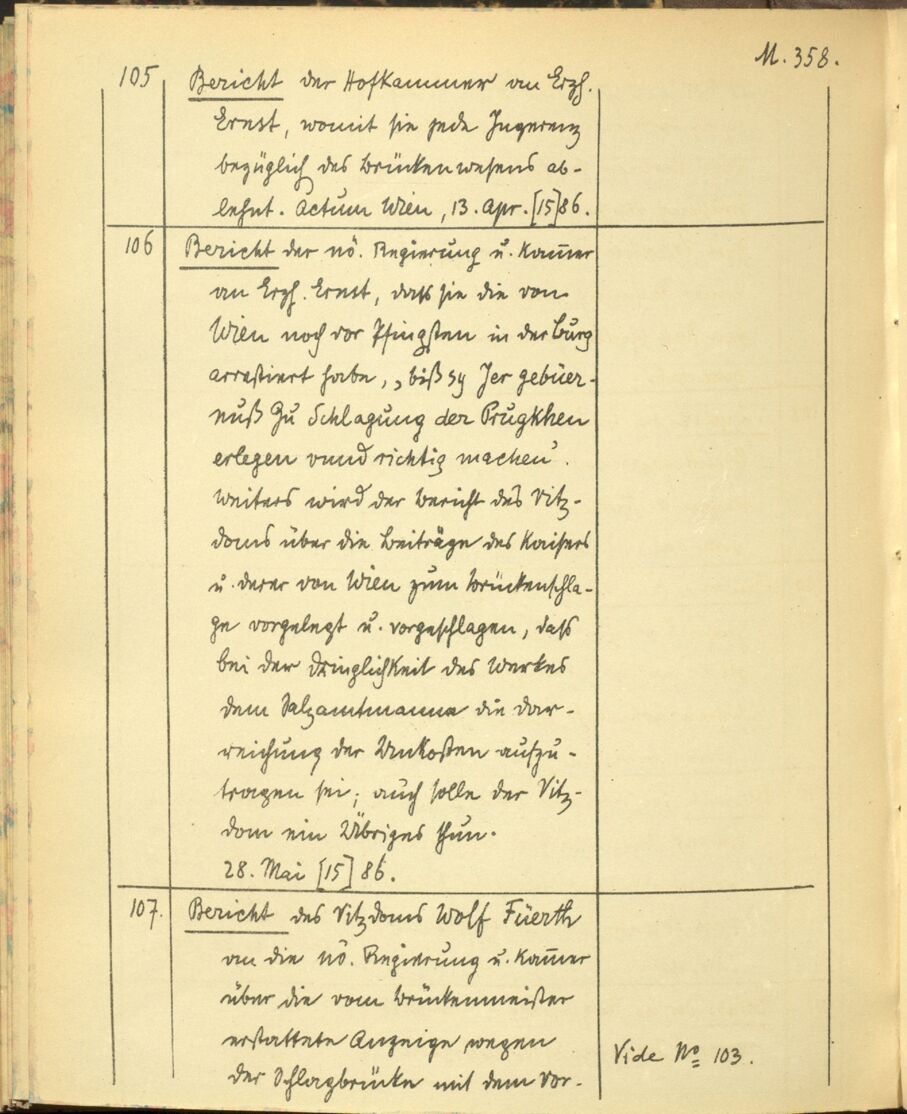 M. 358.
105 Bericht der Hofkammer an Erzh.
Ernst, womit sie jede Ingerenz
bezüglich des Brückenwesens ab-
lehnt. Actum Wien, 13. Apr. [15]86.
106 Bericht der nö. Regierung u. Kam̄er
an Erzh. Ernst, dass sie die von
Wien noch vor Pfingsten in der Burg
arrestiert habe, „biß sy Jer gebüer-
nuß zu Schlagung der Prugkhen
erlegen vnnd richtig machen'.
Weiters wird der Bericht des Vitz-
doms über die Beiträge des Kaisers
u. derer von Wien zum Brückenschla-
ge vorgelegt u. vorgeschlagen, dass
bei der Dringlichkeit des Werkes
dem Salzamtmanne die Dar-
reichung der Unkosten aufzu-
tragen sei; auch solle der Vitz-
dom ein Übriges thun.
28. Mai [15]86.
107. Bericht des Vitzdoms Wolf Füerth
an die nö. Regierung u. Kam̄er
über die vom Brückenmeister
erstattete Anzeige wegen
der Schlagbrücke mit dem Vor-
Vide No 103.